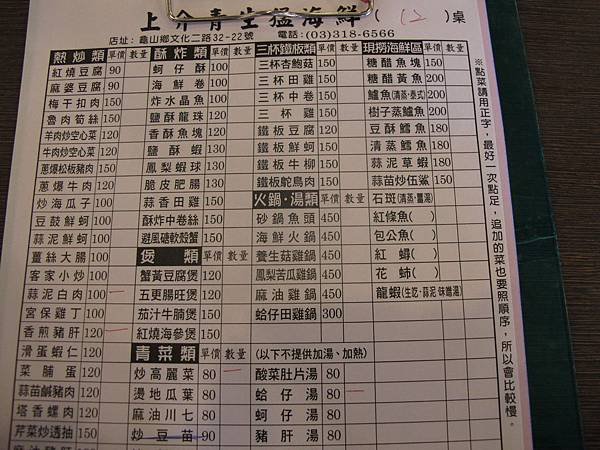 上介青生猛海鮮 ( 12 )桌
店址：龜山鄉文化二路32-22號 電話：(03)318-6566
熱炒類 單價 數量
紅燒豆腐 90
麻婆豆腐 90
梅干扣肉 150
魯肉筍絲 150
羊肉炒空心菜 120
牛肉炒空心菜 120
蔥爆松板豬肉 150
蔥爆牛肉 120
炒海瓜子 100
豆鼓鮮蚵 100
蒜泥鮮蚵 100
薑絲大腸 100
客家小炒 100
蒜泥白肉 100
宮保雞丁 100
香煎豬肝 120
滑蛋蝦仁 120
菜脯蛋 120
蒜苗鹹豬肉 120
塔香螺肉 120
芹菜炒透抽 150
酥炸類 單價 數量
蚵仔酥 100
海鮮卷 100
炸水晶魚 100
鹽酥龍珠 120
香酥魚塊 120
鹽酥蝦 130
鳳梨蝦球 130
脆皮肥腸 130
蒜香田雞 150
酥炸中卷絲 150
避風礚軟殼蟹 150
煲類 單價 數量
蟹黃豆腐煲 120
五更腸旺煲 120
茄汁牛腩煲 150
紅燒海參煲 150
青菜類 單價 數量
炒高麗菜 80
燙地瓜葉 80
麻油川七 80
炒豆苗 90
三杯鐵板類 單價 數量
三杯杏鮑菇 150
三杯田雞 150
三杯中卷 150
三杯雞 150
鐵板豆腐 120
鐵板鮮蚵 150
鐵板牛柳 150
鐵板鴕鳥肉 150
火鍋．湯類 單價 數量
砂鍋魚頭 450
海鮮火鍋 450
養生菇雞鍋 450
鳳梨苦瓜雞鍋 450
麻油雞鍋 450
蛤仔田雞鍋 300
(以下不提供加湯、加熱)
酸菜肚片湯 80
蛤仔湯 80
蚵仔湯 80
豬肝湯 80
現撈海鮮區 單價 數量
糖醋魚塊 150
糖醋黃魚 200
鱸魚(清蒸·泰式) 200
樹子蒸鱸魚 200
豆酥鱈魚 180
清蒸鱈魚 180
蒜泥草蝦 180
蒜苗炒伍鯊 150
石斑(清蒸·薑湯)
紅條魚( )
包公魚( )
紅蟳( )
花蚧( )
龍蝦(生吃·蒜泥·味噌湯)
※點菜請用正字，最好一次點足，追加的菜也要照順序，所以會比較慢。